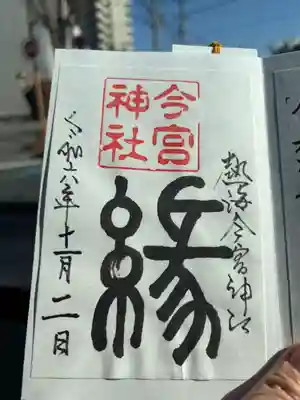 熱海今宮神社
今宮
神社
縁
令和六年十一月二日